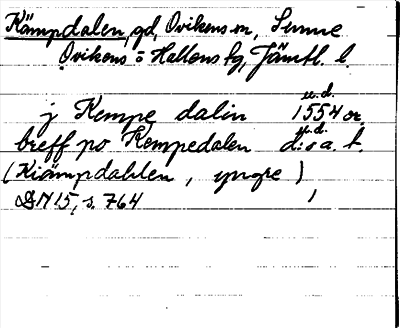 Kämpdalen, gd, Ovikens sn, Sunne
Ovikens o Hallens tg, Jämtl. l.
u.d.
j Kempe dalin 1554 or.
u.d.
breff po Kempedalen d:o a. t.
(Kiämpdahlen, yngre)
DN 15, s. 764